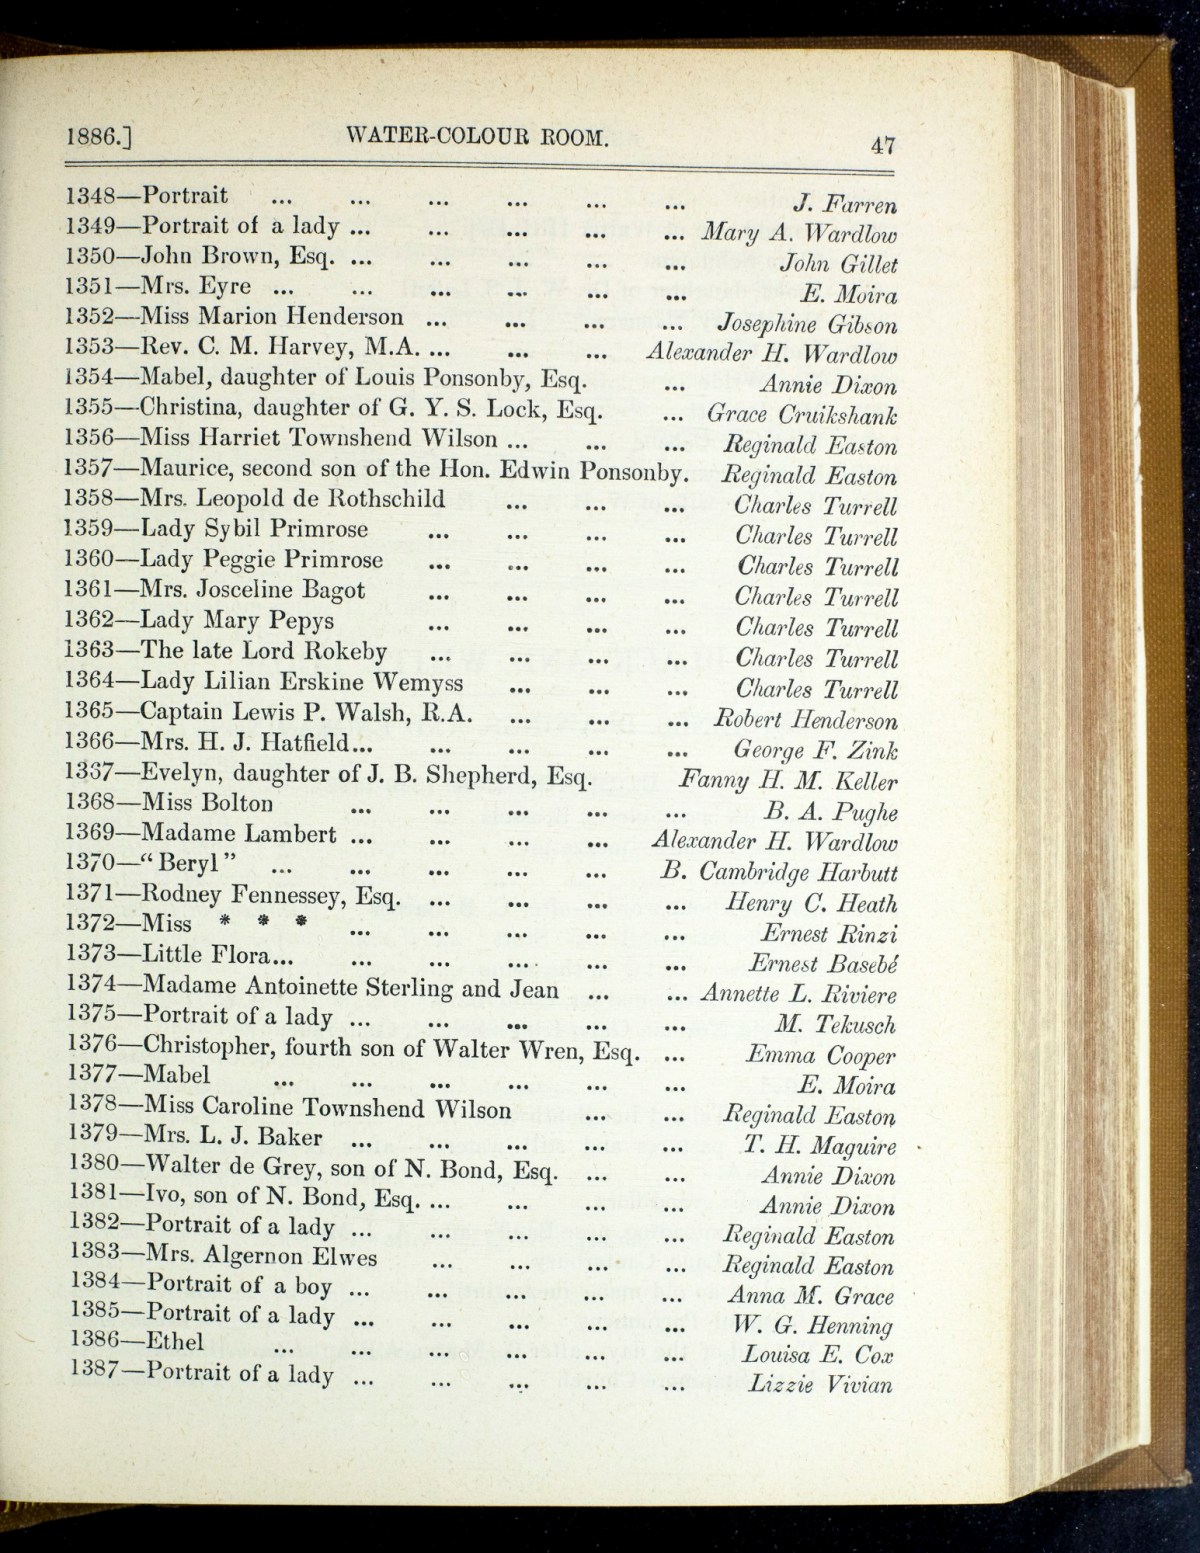 1886.] WATER-COLOUR ROOM. 47
1348—Portrait ... ... ... ... ... ... J. Farren
1349—Portrait of a lady ... ... ... ... ... Mary A. Wardlow
1350—John Brown, Esq. ... ... ... ... ... John Gillet
1351—Mrs. Eyre ... ... ... ... ... ... E. Moira
1352—Miss Marion Henderson ... ... ... ... Josephine Gibson
1353—Rev. C. M. Harvey, M.A. ... ... ... Alexander H. Wardlow
1354—Mabel, daughter of Louis Ponsonby, Esq. ... Annie Dixon
1355—Christina, daughter of G. Y. S. Lock, Esq. ... Grace Cruikshank
1356—Miss Harriet Townshend Wilson ... ... ... Reginald Easton
1357—Maurice, second son of the Hon. Edwin Ponsonby. Reginald Easton
1358—Mrs. Leopold de Rothschild ... ... ... Charles Turrell
1359—Lady Sybil Primrose ... ... ... ... Charles Turrell
1360—Lady Peggie Primrose ... ... ... ... Charles Turrell
1361—Mrs. Josceline Bagot ... ... ... ... Charles Turrell
1362—Lady Mary Pepys ... ... ... ... Charles Turrell
1363—The late Lord Rokeby ... ... ... ... Charles Turrell
1364—Lady Lilian Erskine Wemyss ... ... ... Charles Turrell
1365—Captain Lewis P. Walsh, R.A. ... ... ... Robert Henderson
1366—Mrs. H. J. Hatfield... ... ... ... ... George F. Zink
1367—Evelyn, daughter of J. B. Shepherd, Esq. Fanny H. M. Keller
1368—Miss Bolton ... ... ... ... ... B. A. Pughe
1369—Madame Lambert ... ... ... ... Alexander H. Wardlow
1370—“Beryl” ... ... ... ... ... B. Cambridge Harbutt
1371—Rodney Fennessey, Esq. ... ... ... ... Henry C. Heath
1372—Miss * * * ... ... ... ... ... Ernest Rinzi
1373—Little Flora... ... ... ... ... ... Ernest Basebé
1374—Madame Antoinette Sterling and Jean ... ... Annette L. Riviere
1375—Portrait of a lady ... ... ... ... ... M. Tekusch
1376—Christopher, fourth son of Walter Wren, Esq. ... Emma Cooper
1377—Mabel ... ... ... ... ... ... E. Moira
1378—Miss Caroline Townshend Wilson ... ... Reginald Easton
1379—Mrs. L. J. Baker ... ... ... ... ... T. H. Maguire
1380—Walter de Grey, son of N. Bond, Esq. ... ... Annie Dixon
1381—Ivo, son of N. Bond, Esq. ... ... ... ... Annie Dixon
1382—Portrait of a lady ... ... ... ... ... Reginald Easton
1383—Mrs. Algernon Elwes ... ... ... ... Reginald Easton
1384—Portrait of a boy ... ... ... ... ... Anna M. Grace
1385—Portrait of a lady ... ... ... ... ... W. G. Henning
1386—Ethel ... ... ... ... ... ... Louisa E. Cox
1387—Portrait of a lady ... ... ... ... ... Lizzie Vivian